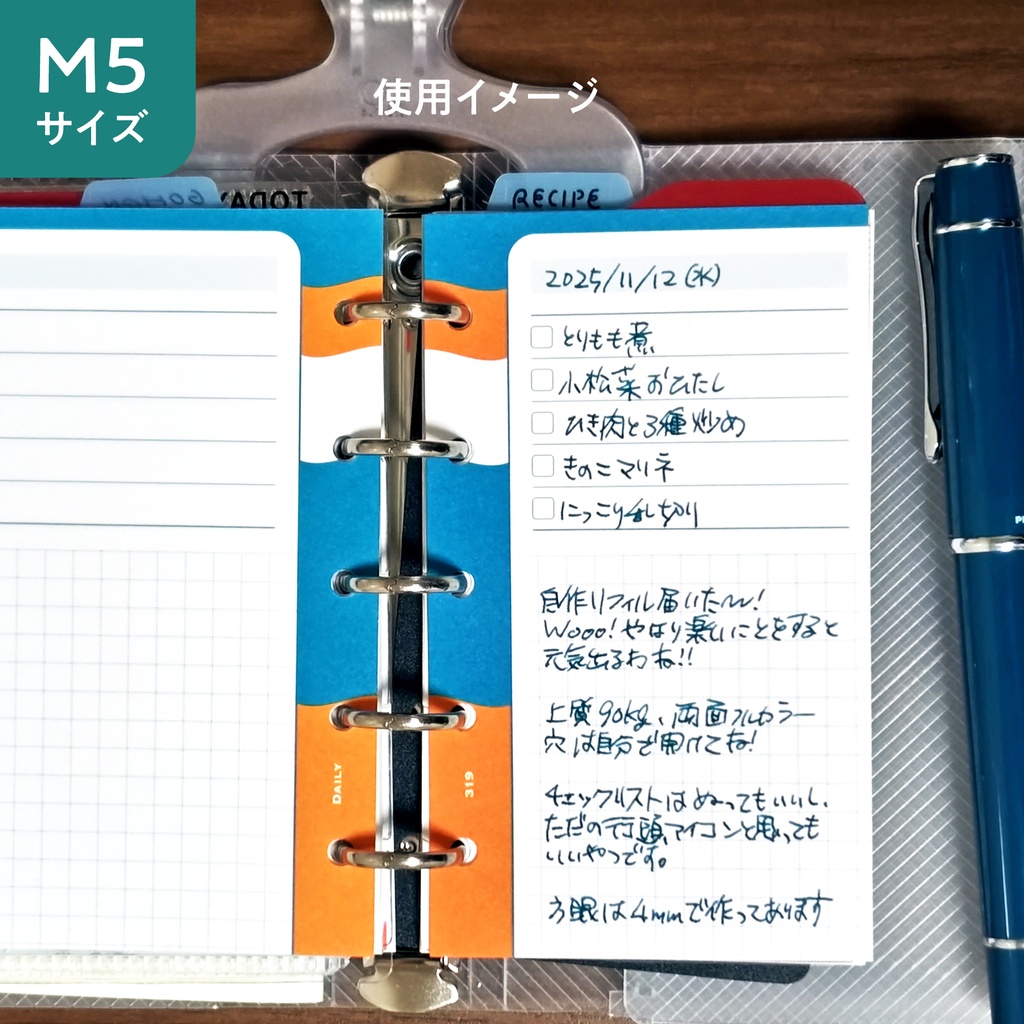 M5
サイズ
使用イメージ
TODAY
RECIPE
2025/11/12(水)
とりもも煮
小松菜おひたし
ひき肉と3種炒め
きのこマリネ
にっこり乱切り
自作リフィル届いた〜!
Wooo!やはり楽しいことをすると
元気出るわね!!
上質90kg、両面フルカラー
穴は自分で開けてね!
チェックリストはぬってもいいし、
ただの行頭アイコンと思っても
いいやつです。
方眼は4mmで作ってあります
DAILY
319